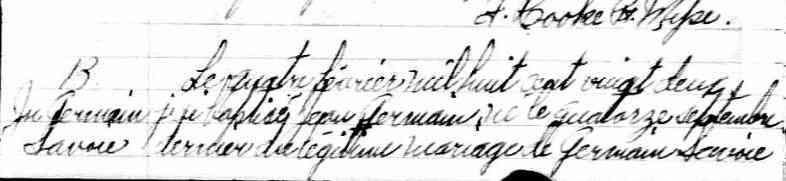 F. Cooke Ptr. Miss.
B. Le quatre février mil huit cent vingt deux
Jn Germain j'ai baptisé Jean Germain né le quatorze septembre
Savoie dernier du légitime mariage de Germain Savoie